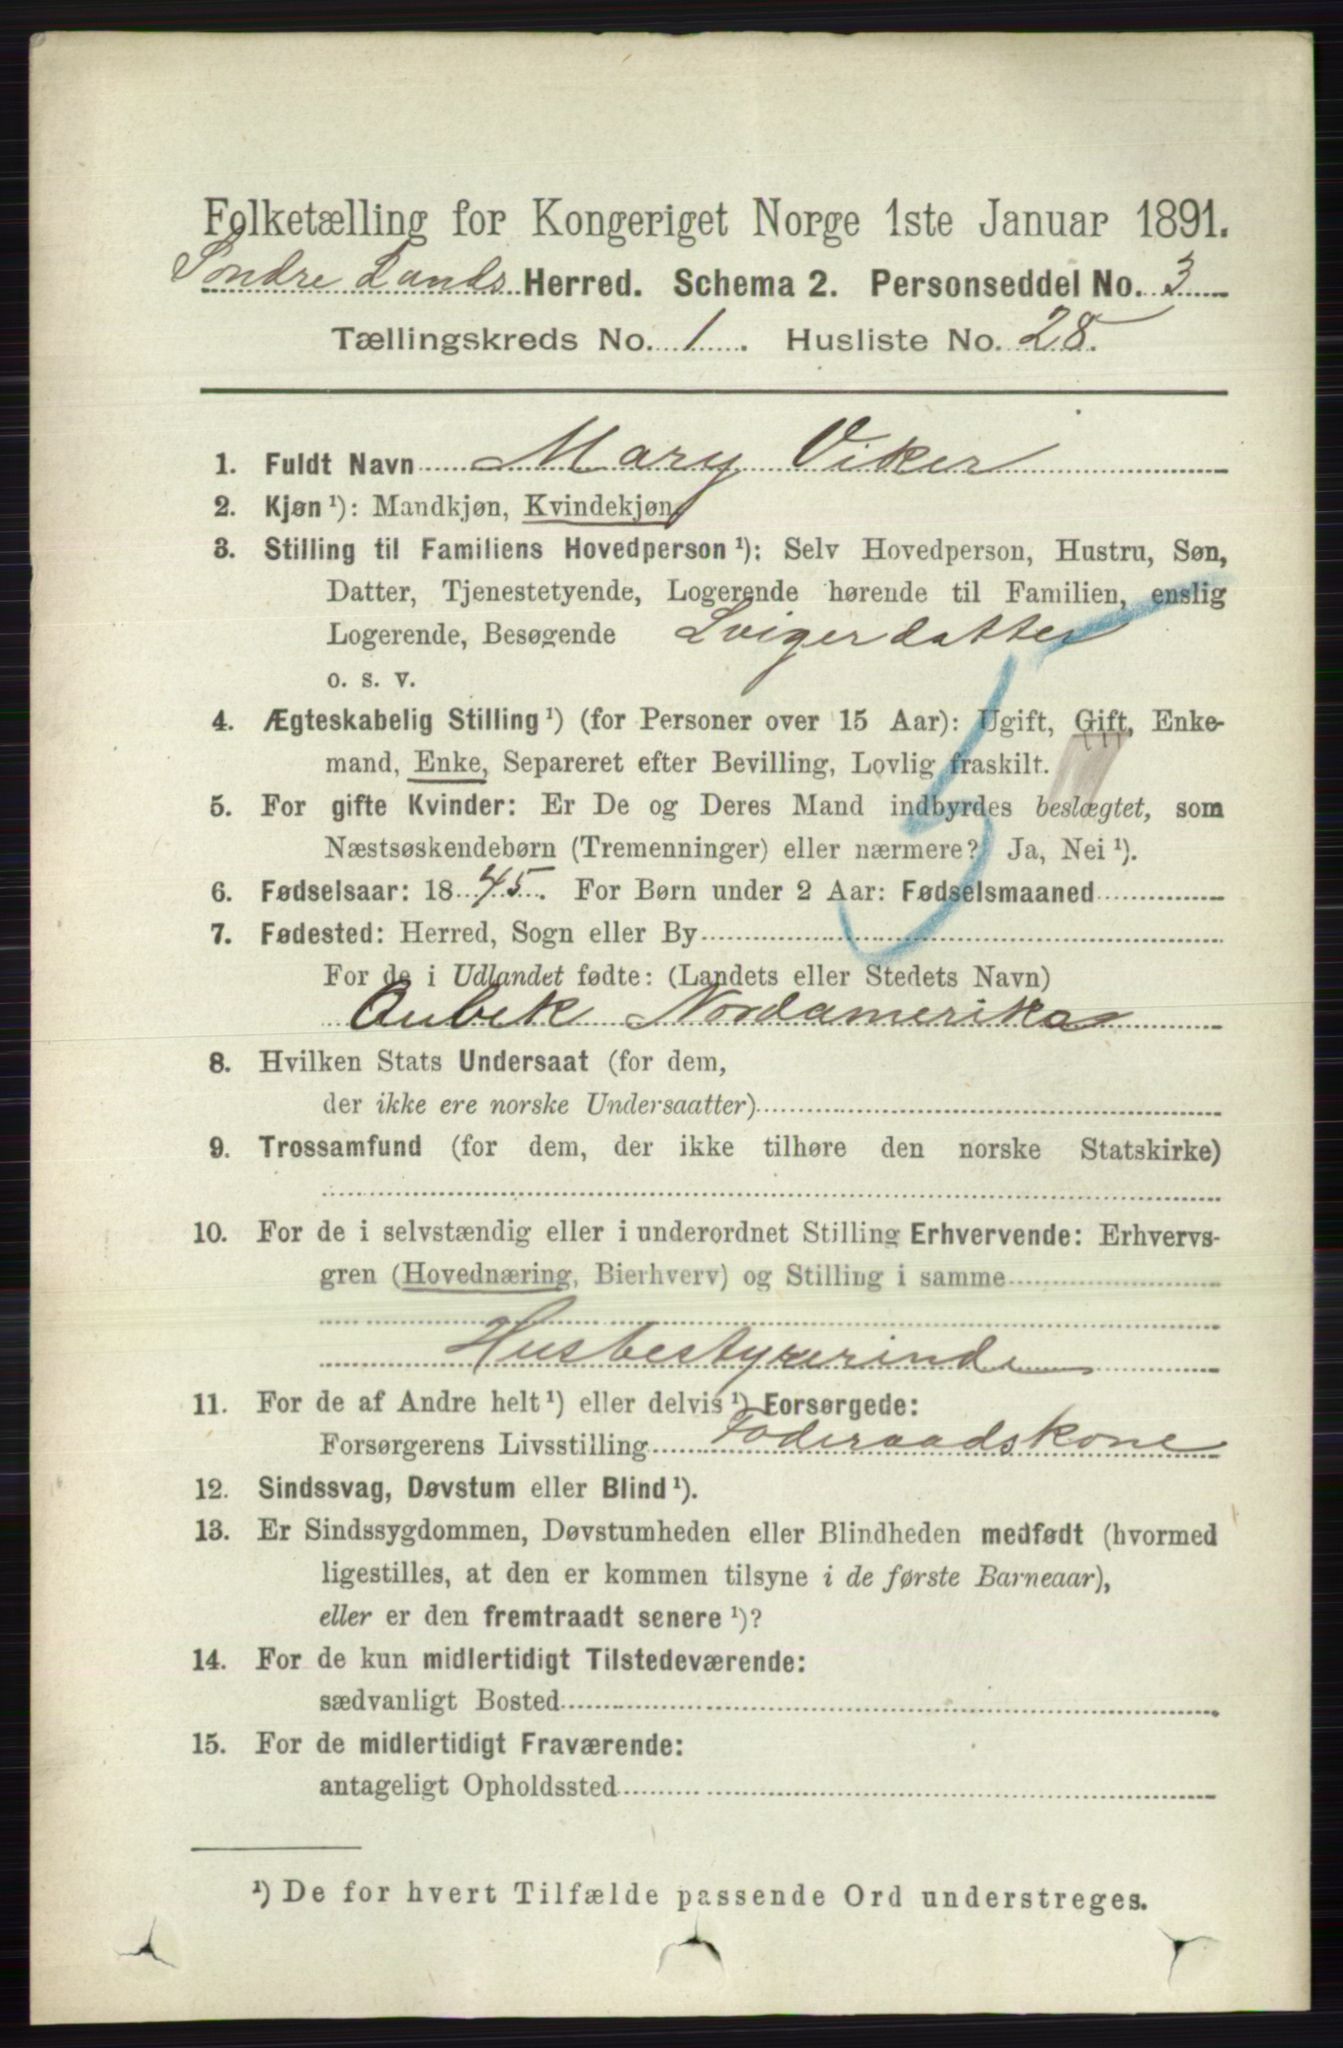 Folketælling for Kongeriget Norge 1ste Januar 1891.
Søndre Lands Herred. Schema 2. Personseddel No. 3
Tællingskreds No. 1. Husliste No. 28.
1. Fuldt Navn Mary Viker
2. Kjøn ¹): Mandkjøn, Kvindekjøn.
3. Stilling til Familiens Hovedperson ¹): Selv Hovedperson, Hustru, Søn,
Datter, Tjenestetyende, Logerende hørende til Familien, enslig
Logerende, Besøgende Svigerdatter
o. s. v.
4. Ægteskabelig Stilling ¹) (for Personer over 15 Aar): Ugift, Gift, Enke-
mand, Enke, Separeret efter Bevilling, Lovlig fraskilt.
5. For gifte Kvinder: Er De og Deres Mand indbyrdes beslægtet, som
Næstsøskendebørn (Tremenninger) eller nærmere? Ja, Nei ¹).
6. Fødselsaar: 1845. For Børn under 2 Aar: Fødselsmaaned
7. Fødested: Herred, Sogn eller By
For de i Udlandet fødte: (Landets eller Stedets Navn)
Qubek Nordamerika
8. Hvilken Stats Undersaat (for dem,
der ikke ere norske Undersaatter)
9. Trossamfund (for dem, der ikke tilhøre den norske Statskirke)
10. For de i selvstændig eller i underordnet Stilling Erhvervende: Erhvervs-
gren (Hovednæring, Bierhverv) og Stilling i samme
Husbestyrerinde
11. For de af Andre helt ¹) eller delvis ¹) Forsørgede:
Forsørgerens Livsstilling Føderaadskone
12. Sindssvag, Døvstum eller Blind ¹).
13. Er Sindssygdommen, Døvstumheden eller Blindheden medfødt (hvormed
ligestilles, at den er kommen tilsyne i de første Barneaar),
eller er den fremtraadt senere ¹)?
14. For de kun midlertidigt Tilstedeværende:
sædvanligt Bosted
15. For de midlertidigt Fraværende:
antageligt Opholdssted
¹) De for hvert Tilfælde passende Ord understreges.